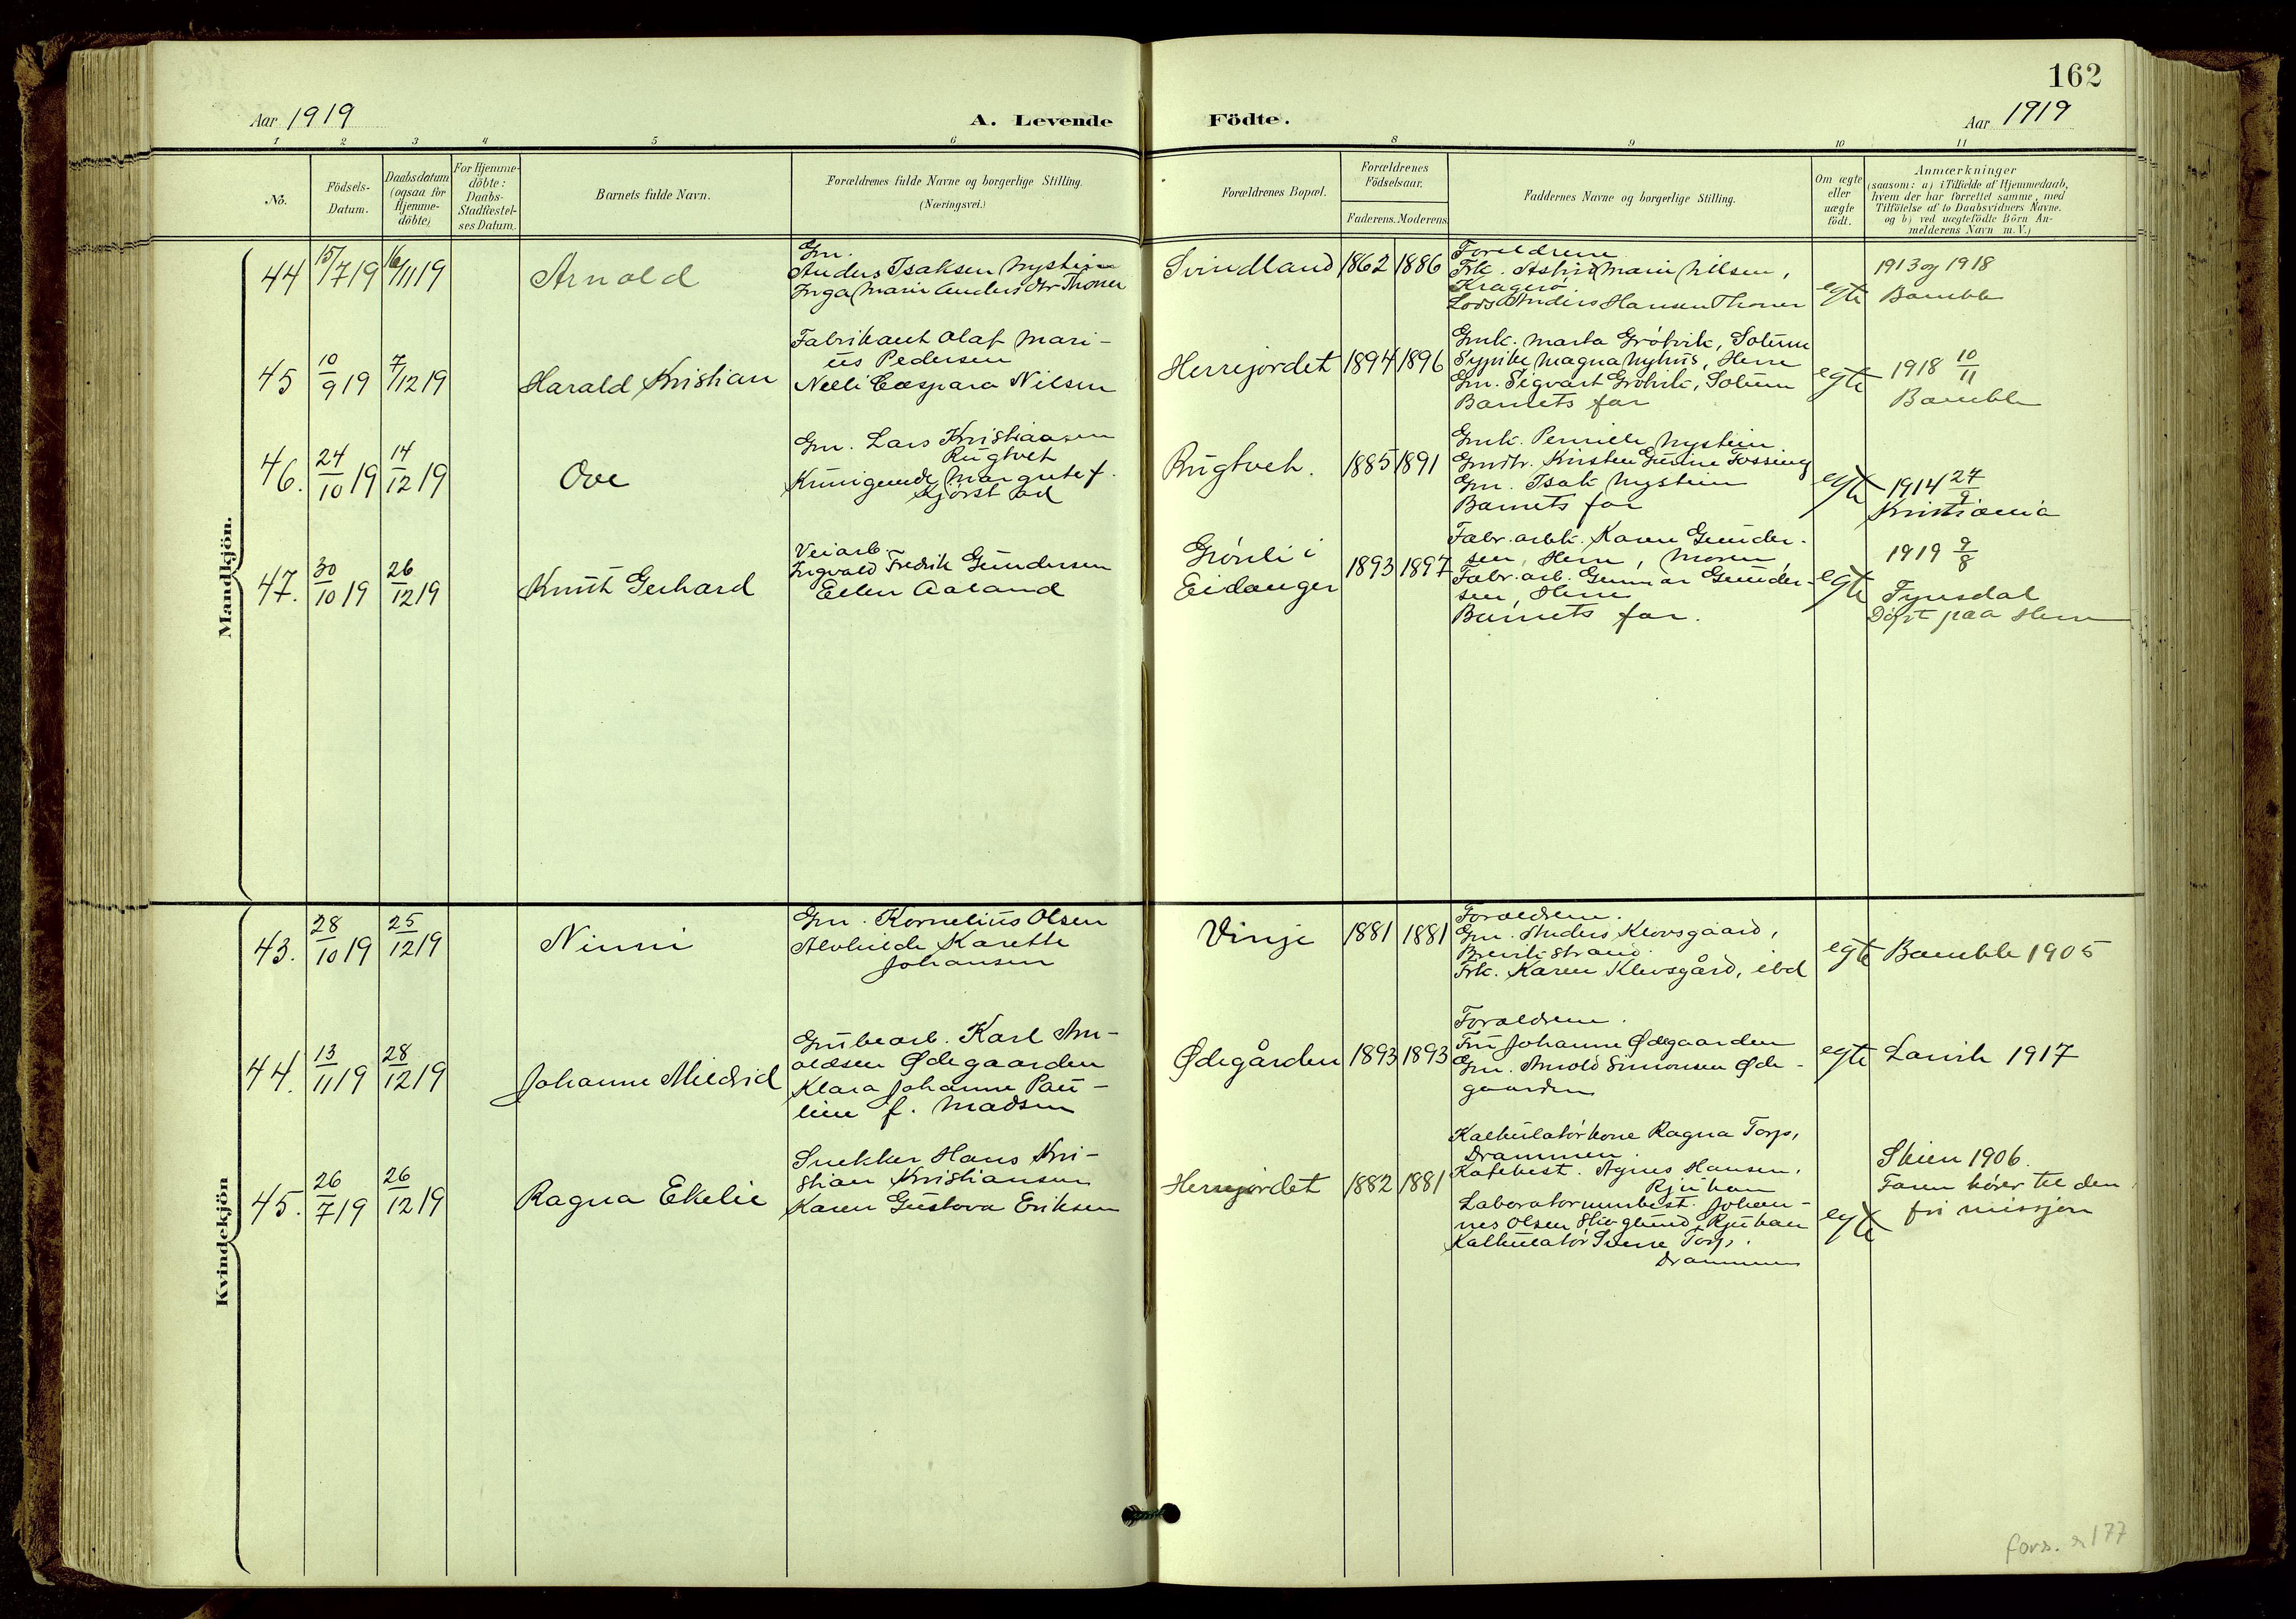 162
Aar 1919
A. Levende
Födte.
Aar 1919
1 2 3 4 5 6 8 9 10 11
No.
Födsels-
Datum.
Daabsdatum
(ogsaa for
Hjemme-
döbte)
For Hjemme-
döbte:
Daabs-
Stadfæstel-
ses Datum.
Barnets fulde Navn.
Forældrenes fulde Navne og borgerlige Stilling.
(Næringsvei.)
Forældrenes Bopæl.
Forældrenes
Födselsaar.
Faderens. Moderens.
Faddernes Navne og borgerlige Stilling.
Om ægte
eller
uægte
födt.
Anmærkninger
(saasom: a) i Tilfælde af Hjemmedaab,
hvem der har forrettet samme, med
Tilföielse af to Daabsvidners Navne.
og b) ved uægtefödte Börn An-
melderens Navn m. V.)
Mandkjön.
44 15/7 19 16/11 19
Arnold
Gm.
Anders Isaksen Nystein
Inga Marie Andersdtr Thoner
Svindland 1862 1886
Foreldrene
Frk. Astrid Marie Nilsen,
Kragerø
Lods Anders Hansen Thoner
egte
1913 og 1918
Bamble
45 10/9 19 7/12 19
Harald Kristian
Fabrikant Olaf Mari-
us Pedersen
Nelli Caspara Nilsen
Herrejordet 1894 1896
Gmk. Marta Grótvik, Solum
Sypike Magna Nyhus, Herre
Gm. Sigvart Grótvik, Solum
Barnets far
egte
1918 10/11
Bamble
46. 24/10 19 14/12 19
Ove
Gm. Lars Kristiansen
Rugtvet
Kunigunde Margrete f.
Kjørstad
Rugtvet. 1885 1891
Gmk. Pernille Nystein
Gmdtr. Kirsten Gurine Fossing
Gm. Isak Nystein
Barnets far
egte
1914 27/9
Kristiania
47. 30/10 19 26/12 19
Knut Gerhard
Veiarb.
Ingvald Fredrik Gundersen
Ellen Aaland
Grónli i
Eidanger
1893 1897
Fabr. arbk. Karen Gunder-
sen, Herre, Moren,
Fabr. arb. Gunnar Gunder-
sen, Herre
Barnets far.
egte
1919 9/8
Fyresdal
Døpt paa Herre
Kvindekjön
43. 28/10 19 25/12 19
Ninni
Gm. Kornelius Olsen
Alvhilde Karette
Johansen
Vinje 1881 1881
Foraeldrene.
Gm. Anders Klovsgaard,
Brevikstrand.
Frk. Karen Klevsgård, ibd
egte
Bamble 1905
44. 13/11 19 28/12 19
Johanne Mildrid
Grubearb. Karl Arn-
oldsen Ødegaarden
Klara Johanne Pau-
line f. Madsen
Ødegården 1893 1893
Foraeldrene.
Fru Johanne Ødegaarden
Gm. Arnold Simonsen Øde-
gaarden
egte
Larvik 1917
45. 26/7 19 26/12 19
Ragna Ekelie
Snekker Hans Kri-
stian Kristiansen
Karen Gustava Eriksen
Herrejordet 1882 1881
Kalkulatórkone Ragna Torp,
Drammen.
Kafebest. Agnes Hansen,
Rjukan
Laboratoriumbest. Johan-
nes Olsen Rjukan
Kalkulatór Torp,
Drammen
egte
Skien 1906.
Faren hører til den
fri missjon
fors. s 177